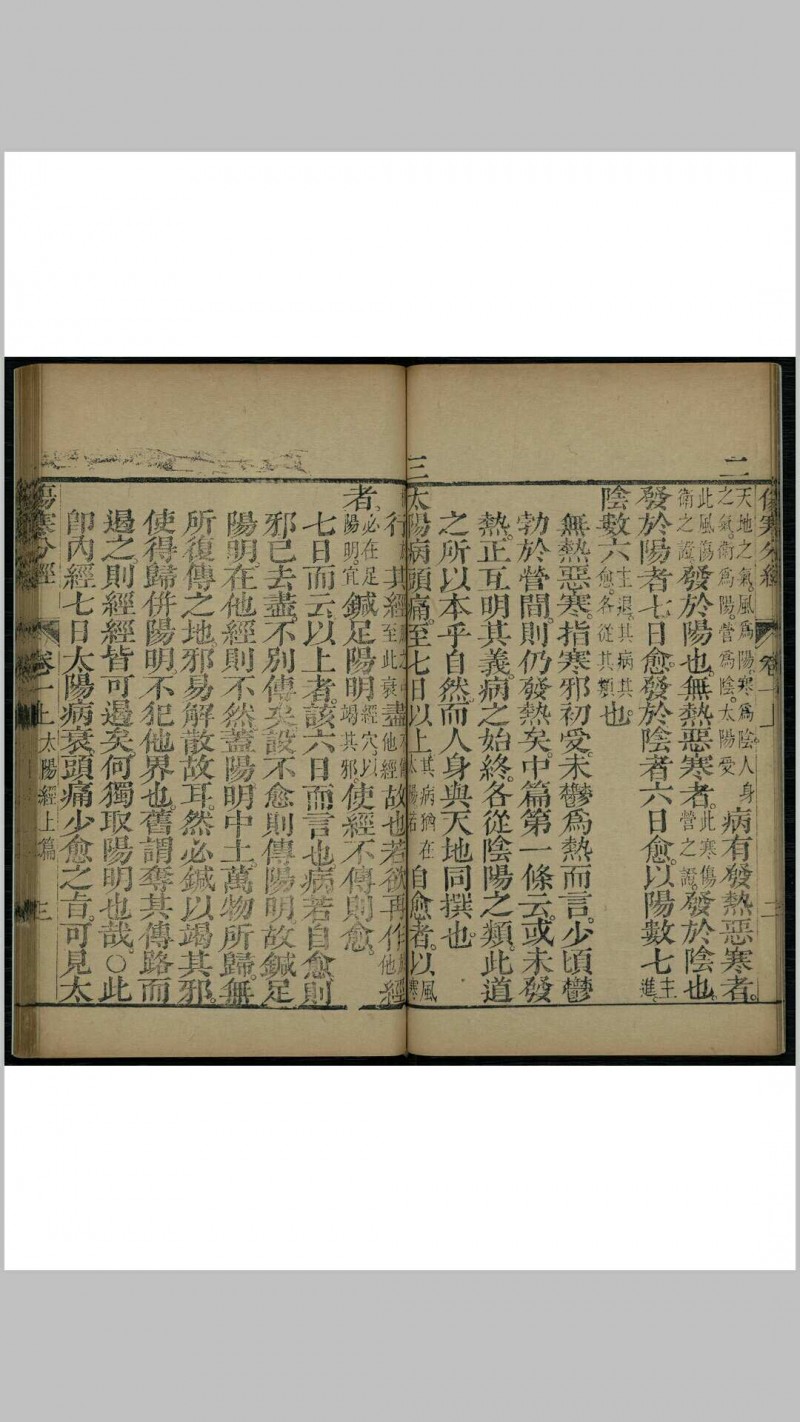 二
天地之氣。風爲陽。寒爲陰。人身
之氣。衞爲陽。營爲陰。太陽受
病有發熱惡寒者。
此風傷
衛之證。
發於陽也。無熱惡寒者。
此寒傷
營之證。
發於陰也。
發於陽者七日愈。發於陰者六日愈。以陽數七
主
進。
陰數六
主退。其病其
愈。各從其類
也。
無熱惡寒。指寒邪初受。未鬱爲熱而言。少頃鬱
勃於營間。則仍發熱矣。中篇第一條云。或未發
熱。正互明其義。病之始終。各從陰陽之類。此道
之所以本乎自然。而人身與天地同撰也。
三
太陽病頭痛。至七日以上
其病猶在
太陽者
自愈者。以
風
寒
行其經
至此衰
盡
他經
故也。若欲再作
他
經
者。
必在足
陽明。宜
鍼足陽明
經穴。以
竭其邪。
使經不傳則愈。
七日而云以上者。該六日而言也。病若自愈。則
邪已去盡。不別傳矣。設不愈則傳陽明。故鍼足
陽明。在他經則不然。蓋陽明中土。萬物所歸。無
所復傳之地。邪易解散故耳。然必鍼以竭其邪。
使得歸併陽明。不犯他界也。舊謂奪其傳路而
遏之。則經經皆可遏矣。何獨取陽明也哉。○此
卽內經七日太陽病衰。頭痛少愈之旨。可見太
傷寒分經 卷一上 太陽經上篇 三